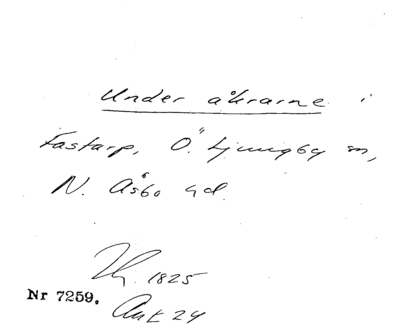 Under åkrarne i
Fastarp, Ö. Ljungby sn,
N. Åsbo hd.
1825
Nr 7259.
Akt 24